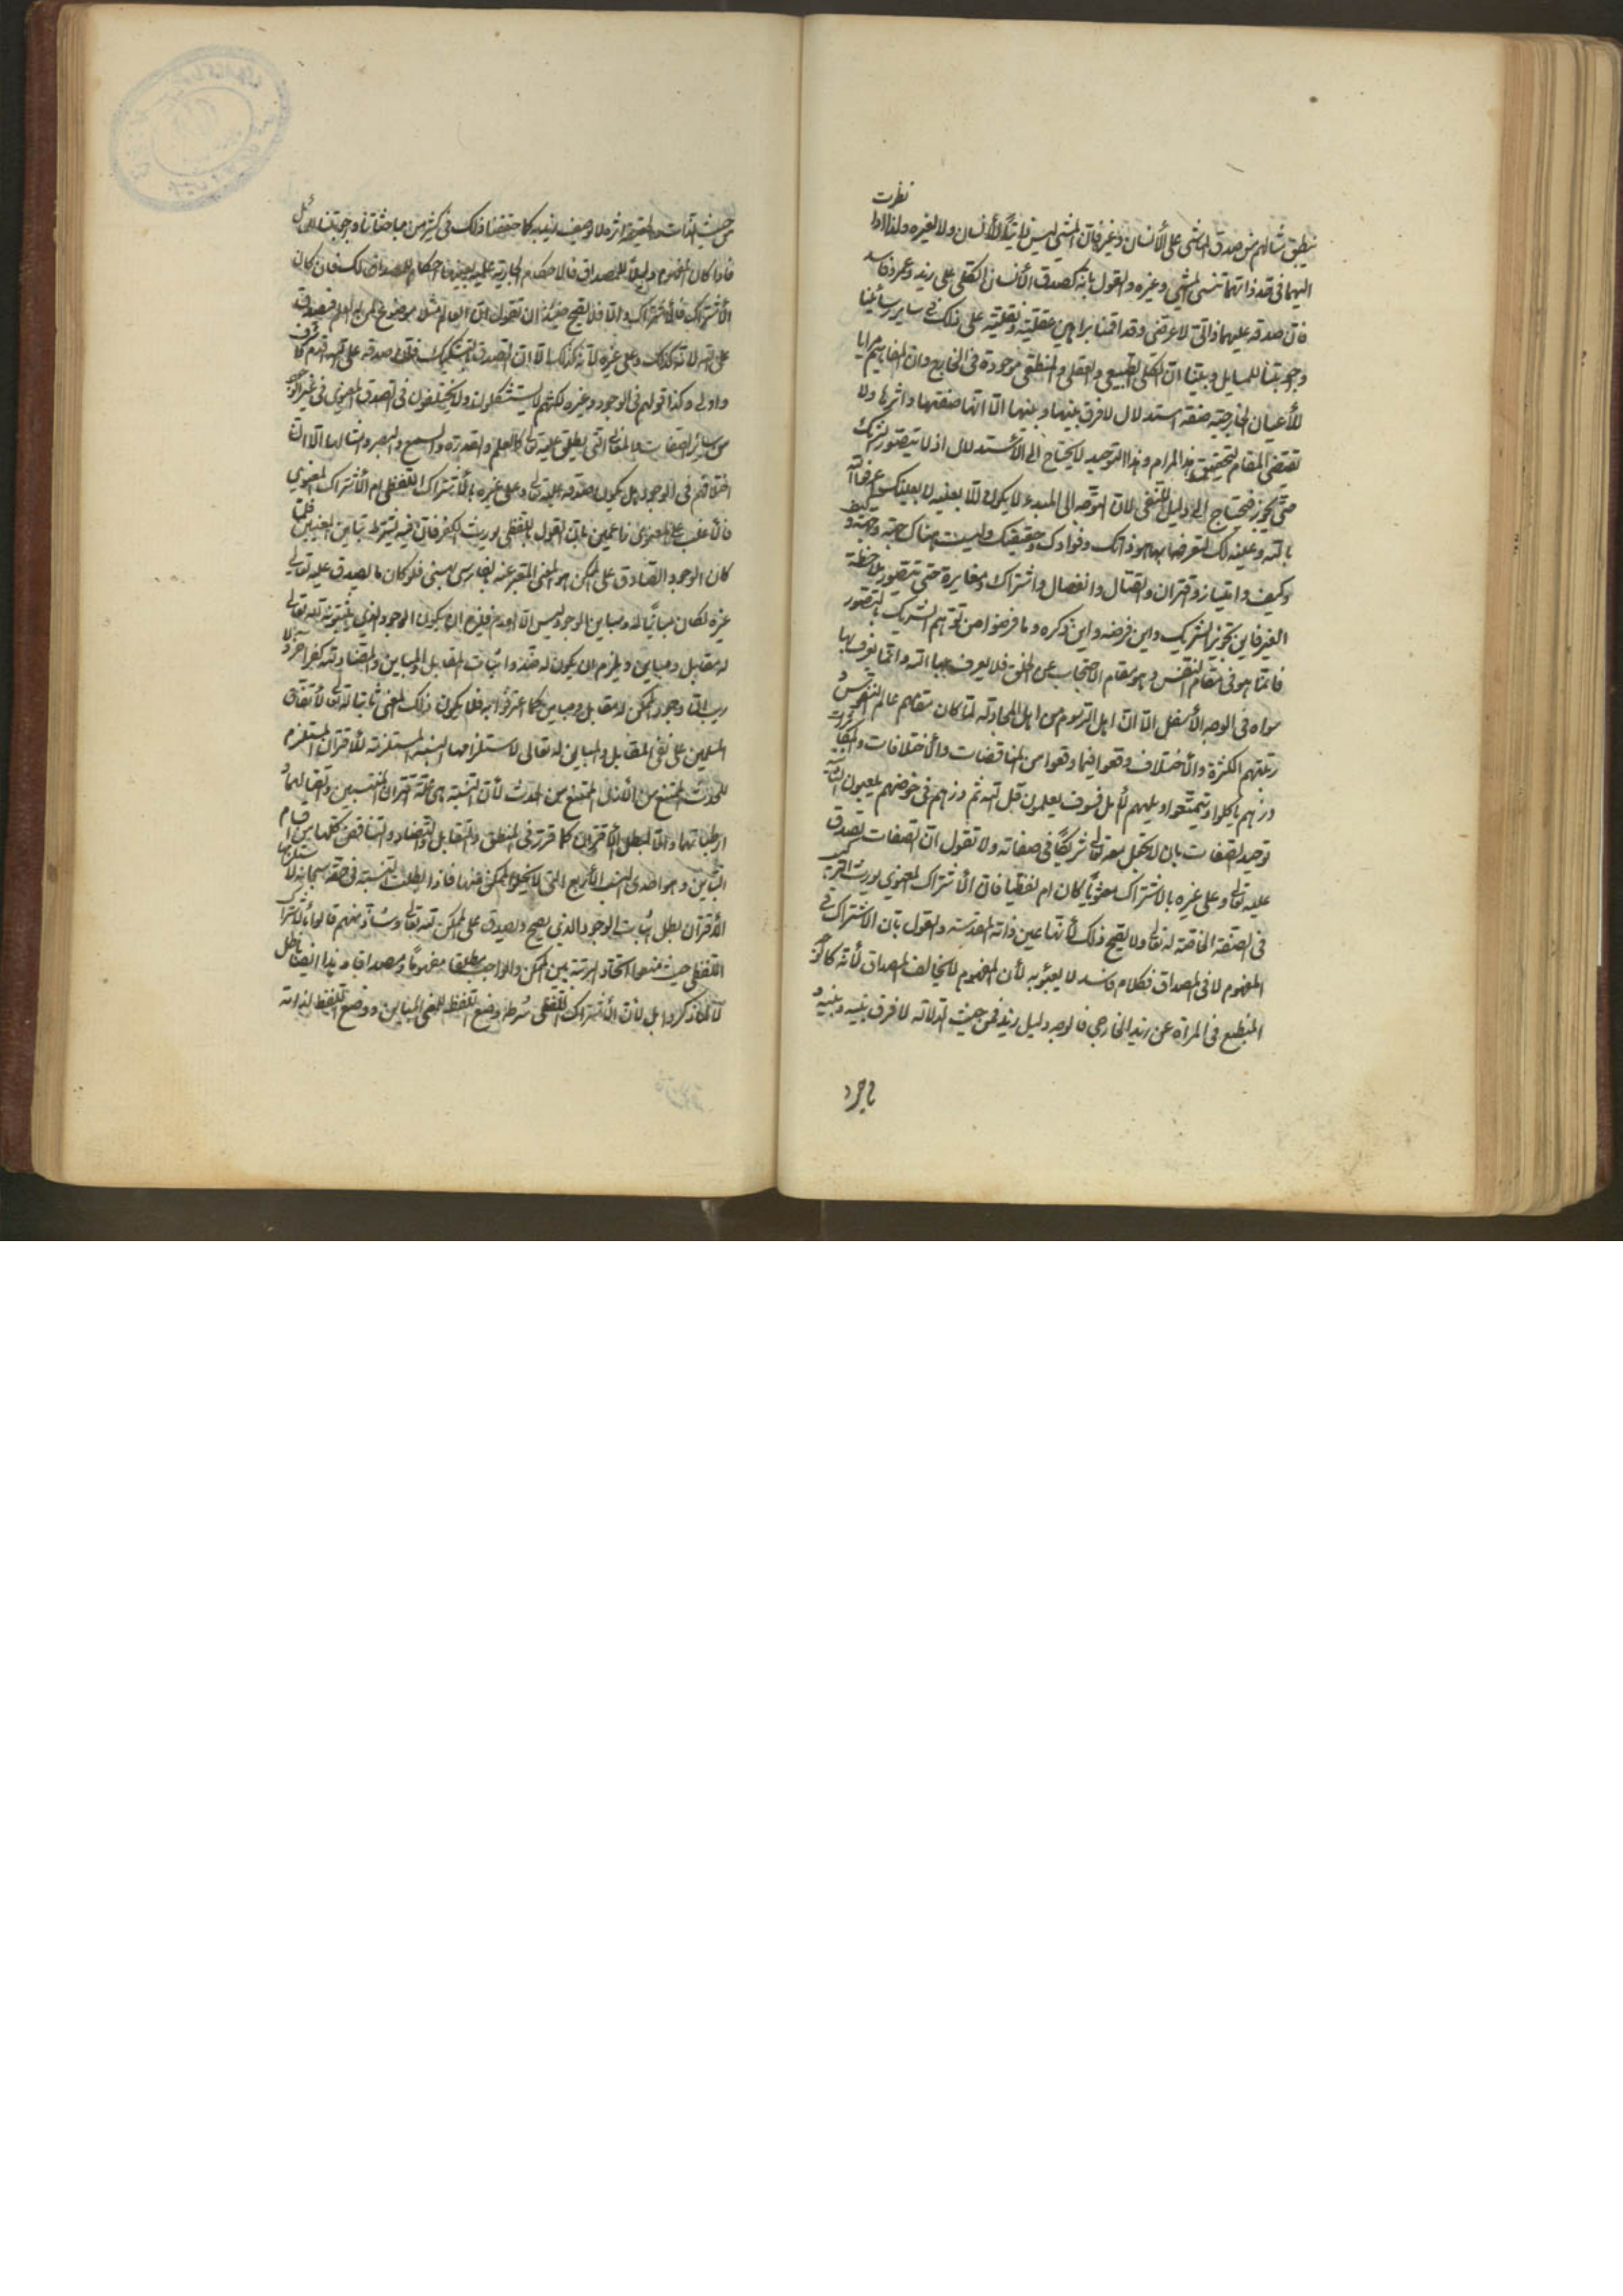 نظرت
ينطبق مثالهم من صدق الماشي على الأنسان وغيره فان المشي ليس ذاتيّاً للأنسان ولا لغيره ولذا اذا
اليهما في قد ذاتهما تنسى المشي وغيره والقول بانه كصدق الأنسان الكلّي على زيد وعمرو فاسد
فان صدقه عليهما ذاتيّ لا عرضي وقد اقمنا براهين عقليّة ونقليّة على ذلك في ساير رسائلنا
واجوبتنا للمسايل وبيّنا انّ الكلّي الطّبيعي والعقلي والمنطقي موجودة في الخارج وان المفاهيم مرايا
للأعيان الخارجيّة صفة استدلال لا فرق بينها وبينها الّا انّها صفتها واثرها ولا
تقتضي المقام لتحقيق هذا المرام وهذا التوحيد لا يحتاج الى الأستدلال اذ لا يتصوّر شريك
حتّى يجوز فيحتاج الى دليل النّفي لانّ التوجّه الى المبدء لا يكون الّا بعينه لا بعينك اعرفوا الله
بالله وعينه لك المتعرّض بها هو ذاتك وفؤادك وحقيقتك وليست هناك جهة وحيث
وكيف وامتياز واقتران واتّصال وانفصال واشتراك ومغايرة حتّى تتصوّر ملاحظة
الغير فاين تجويز الشريك واين فرضه واين ذكره وما فرضوا من توهّم الشريك لتصوّر
فانّما هو في مقام النّفس وهو مقام الاحتجاب عن الحق فلا يعرف بها الله وانّما يعرف بها
سواه في الوجه الأسفل الّا انّ اهل الرّسوم من اهل المجادلة لمّا كان مقامهم عالم النّفوس و
رتبتهم الكثرة والأختلاف وقعوا فيما وقعوا من المناقضات والأختلافات والمكابرات
ذرهم ياكلوا ويتمتّعوا ويلههم الأمل فسوف يعلمون قل الله ثم ذرهم في خوضهم يلعبون
توحيد الصّفات بان لا تجعل معه تعالى شريكاً في صفاته ولا تقول انّ الصفات تصدق
عليه تعالى وعلى غيره بالاشتراك معنويّاً كان ام لفظيّا فانّ الأشتراك المعنوي يورث التركيب
في الصّفة الخاصّة له تعالى ولا يصحّ ذلك لأنّها عين ذاته المقدّسة والقول بانّ الاشتراك في
المفهوم لا في المصداق فكلام فاسد لا يعبؤ به لأن المفهوم لا يخالف المصداق لأنّه كالوجه
المنطبع في المرآة عن زيد الخارجي فالوجه دليل زيد فمن حيث الدّلالة لا فرق بينه وبينه و
من حيث الذّات والحقيقة اثره لا وصف نفسه كما حقّقنا ذلك في كثير من مباحثاتنا واجوبتنا للمسائل
فاذا كان المفهوم دليلاً للمصداق فالاحكام الجارية عليه بعينها احكام للمصداق لك فان كان
الأشتراك فالأشتراك والّا فلا يصحّ حينئذ ان تقول انّ العالم مثلا موضوع لمن له العلم فيصدق
على الله لانّه كذلك وعلى غيره لأنّه كذلك الّا انّ الصدق بالتشكيك فانّ صدقه على الله اقدم واشرف
واولى وكذا قولهم في الوجود وغيره لكنّهم لا يستشكلون ولا يختلفون في الصدق المعنوي في غير الوجود
من ساير الصّفات والمعاني الّتي يطلق عليه تعالى كالعلم والقدرة والسمع والبصر وامثالها الّا انّ
اختلافهم في الوجود هل يكون صدقه عليه تعالى وعلى غيره بالأشتراك اللّفظي ام الأشتراك المعنوي
فالأغلب على المعنوي زاعمين بانّ القول باللّفظي يورث الكفر فانّ فيه يشترط تباين المعنيين فلمّا
كان الوجود الصّادق على الممكن هو المعنى المعبّر عنه بالفارسي بهستي فلو كان ما يصدق عليه تعالى
غيره لكان مبايناً له ومباين الوجود ليس الّا العدم فيلزم ان يكون الوجود الذي يثبتونه لله تعالى
له مقابل ومباين ويلزم ان يكون له ضدّ واثبات المقابل والمباين والمضاد لله كفر
ريب انّ وجود الممكن له مقابل ومباين كما اعترفوا به فلا يكون ذلك المعنى ثابتا له تعالى لأتّفاق
المسلمين على نفي المقابل والمباين له تعالى لاستلزامهما النسبة المستلزمة للأقتران المستلزم
للحدوث الممتنع من الأزل الممتنع من الحدث لأنّ النّسبة هي اقتران المنتسبين واتّصالهما و
ارتباطهما والّا لبطل الأقتران كما قرّر في المنطق والتّقابل والتّضاد والتناقض كلّها من اقسام
التّباين وهو احدى النسب الأربع الّتي لا يخلو الممكن عنها فاذا بطلت النّسبة في حقّه سبحانه لاستلزامها
الأقتران بطل اثبات الوجود الذي يصحّ ويصدق على الممكن لله تعالى وشاذ منهم قالوا بالأشتراك
اللّفظي حيث منعوا اتّحاد الرّتبة بين الممكن والواجب مطلقا مفهوماً ومصداقا وهذا ايضا باطل
لا لما ذكروا بل لأنّ الأشتراك اللّفظي شرطه وضع اللّفظ للمعنى المباين ووضع اللّفظ لذاته